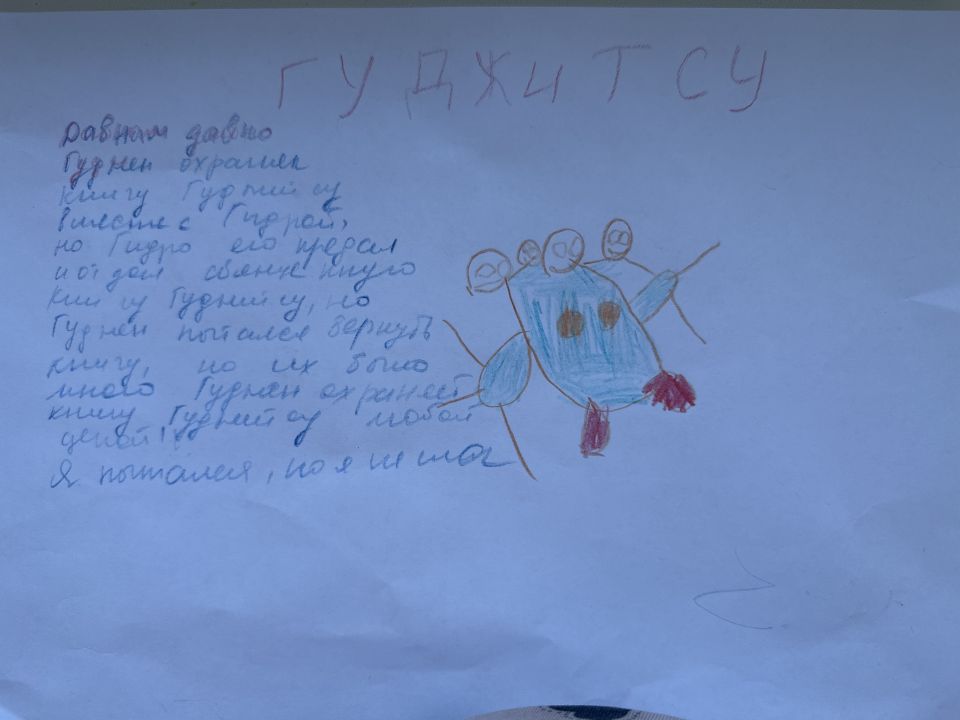 ГУДЖИТСУ
Давным давно
Гуднен охранял
книгу Гуджитсу
вместе с Гидрой,
но Гидро его предал
и отдал книгу
книгу Гуджитсу, но
Гуднен пытался вернуть
книгу, но их было
много Гуднен охраняет
книгу Гуджитсу любой
ценой!
Я пытался, но я не смог